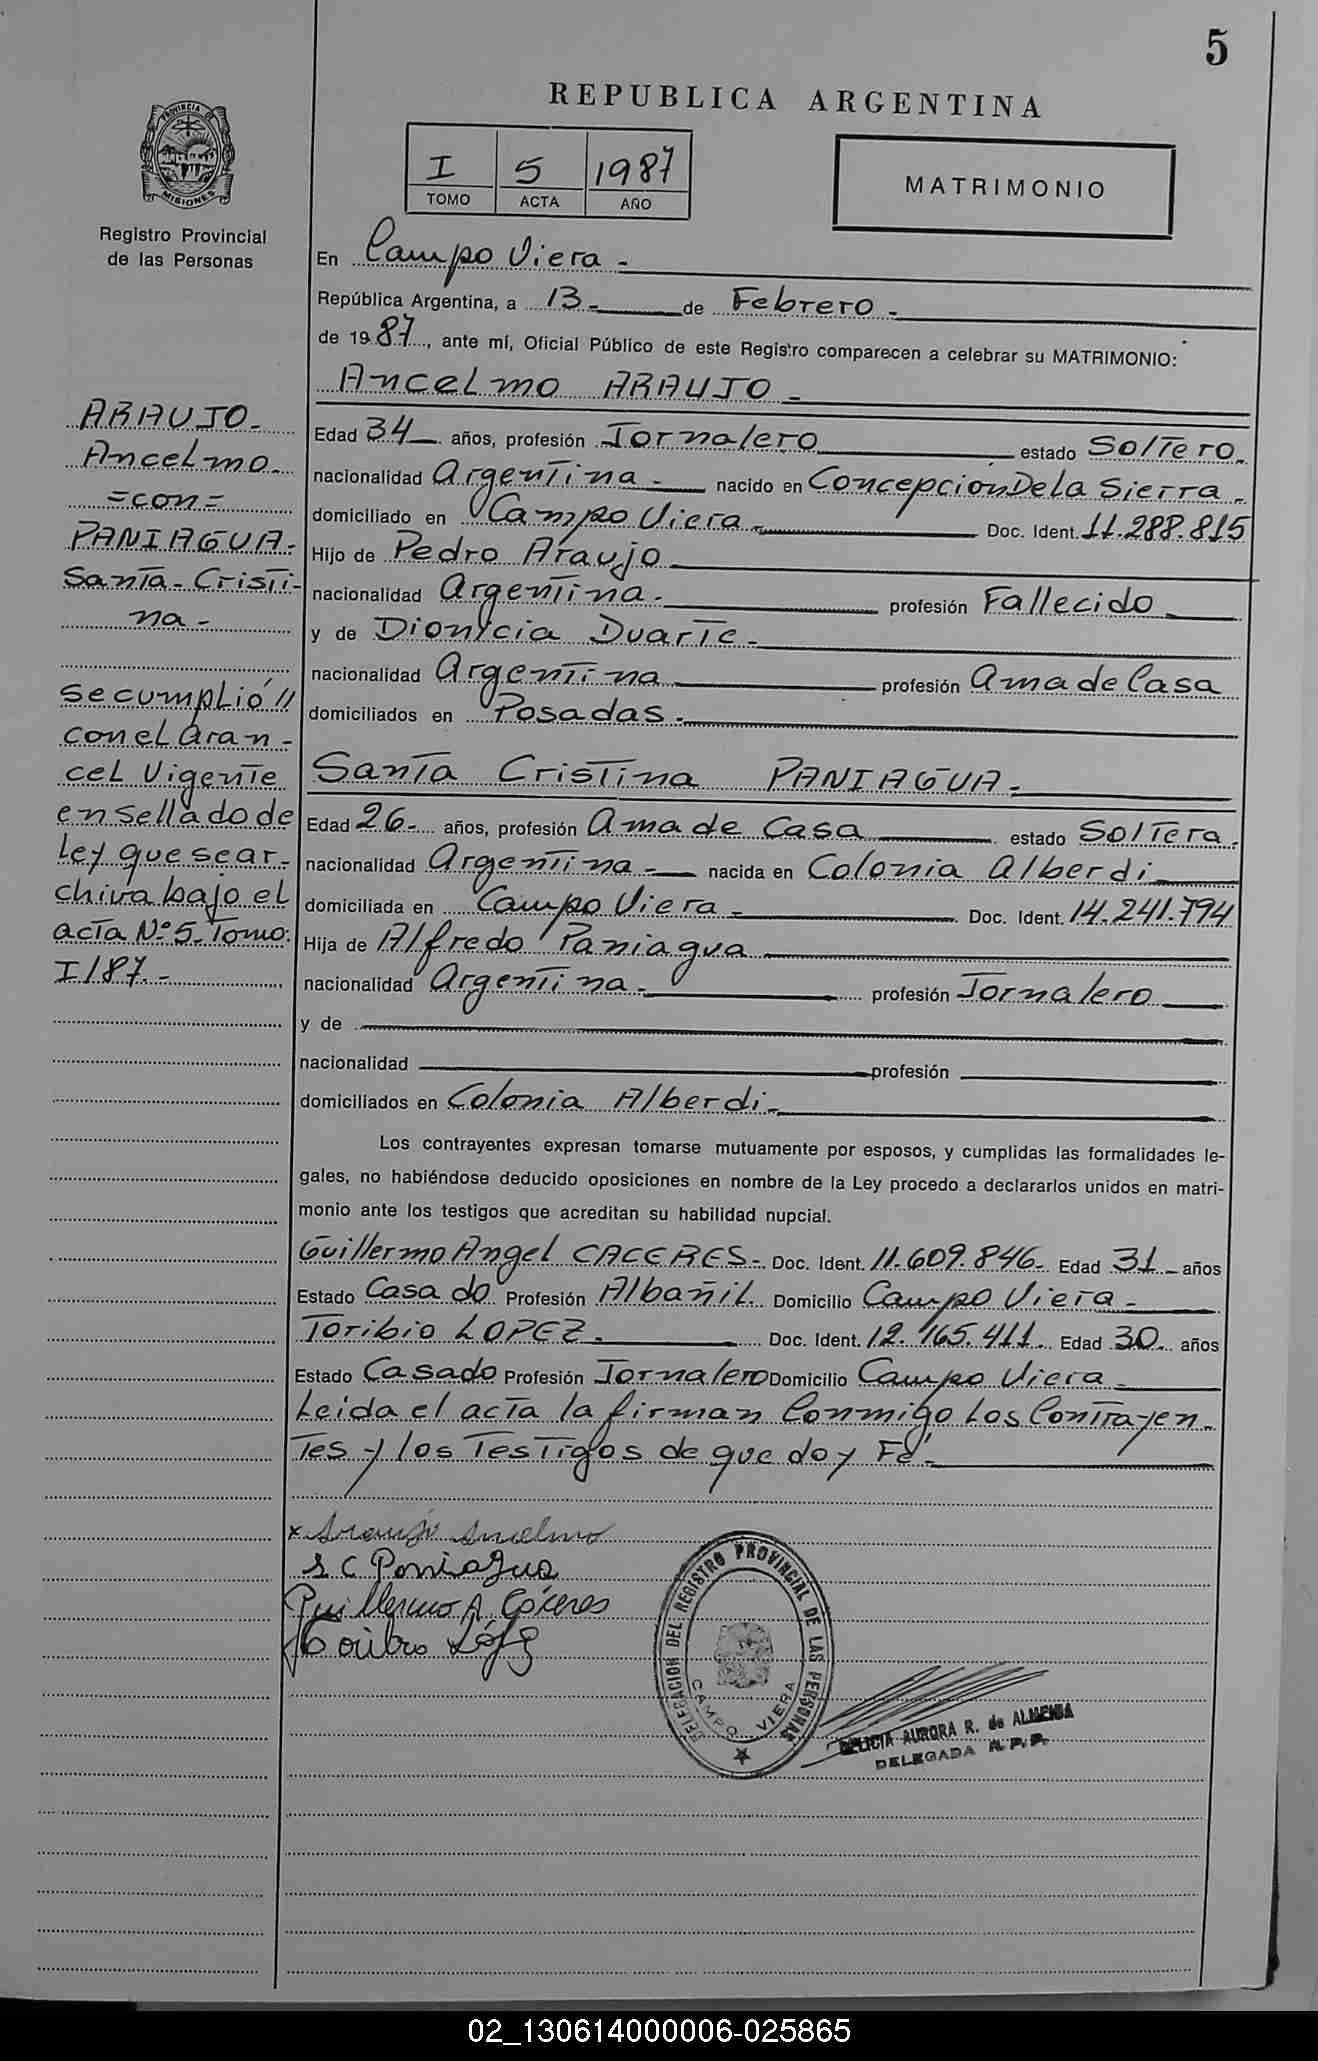 5
REPUBLICA ARGENTINA
I 5 1987
TOMO ACTA AÑO
MATRIMONIO
PROVINCIA DE
MISIONES
Registro Provincial
de las Personas
ARAUJO-
Ancelmo-
=con=
PANIAGUA-
Santa-Cristi-
na-
se cumplió //
con el Aran-
cel Vigente
en sellado de
Ley que se ar-
chiva bajo el
acta Nº5-Tomo:
I/87.-
En Campo Viera-
República Argentina, a 13- de Febrero-
de 1987, ante mí, Oficial Público de este Registro comparecen a celebrar su MATRIMONIO:
Ancelmo ARAUJO-
Edad 34 años, profesión Jornalero estado Soltero-
nacionalidad Argentina- nacido en Concepción De la Sierra-
domiciliado en Campo Viera- Doc. Ident. 11.288.815
Hijo de Pedro Araujo
nacionalidad Argentina- profesión Fallecido
y de Dionycia Duarte-
nacionalidad Argentina profesión Ama de Casa
domiciliados en Posadas-
Santa Cristina PANIAGUA-
Edad 26- años, profesión Ama de Casa estado Soltera-
nacionalidad Argentina- nacida en Colonia Alberdi
domiciliada en Campo Viera- Doc. Ident. 14.241.794
Hija de Alfredo Paniagua
nacionalidad Argentina- profesión Jornalero
y de
nacionalidad profesión
domiciliados en Colonia Alberdi-
Los contrayentes expresan tomarse mutuamente por esposos, y cumplidas las formalidades le-
gales, no habiéndose deducido oposiciones en nombre de la Ley procedo a declararlos unidos en matri-
monio ante los testigos que acreditan su habilidad nupcial.
Guillermo Angel CACERES- Doc. Ident. 11.609.846- Edad 31 años
Estado Casado Profesión Albañil Domicilio Campo Viera-
Toribio LOPEZ- Doc. Ident. 12.165.411 Edad 30 años
Estado Casado Profesión Jornalero Domicilio Campo Viera-
Leida el acta la firman Conmigo Los Contrayen-
tes y los Testigos de que doy Fé-
x Araujo Ancelmo
S C Paniagua
Guillermo A. Cáceres
Toribio López
DELEGACION DEL REGISTRO PROVINCIAL DE LAS PERSONAS
CAMPO VIERA
AURORA R. de ALMEIDA
DELEGADA R.P.P.
02_130614000006-025865